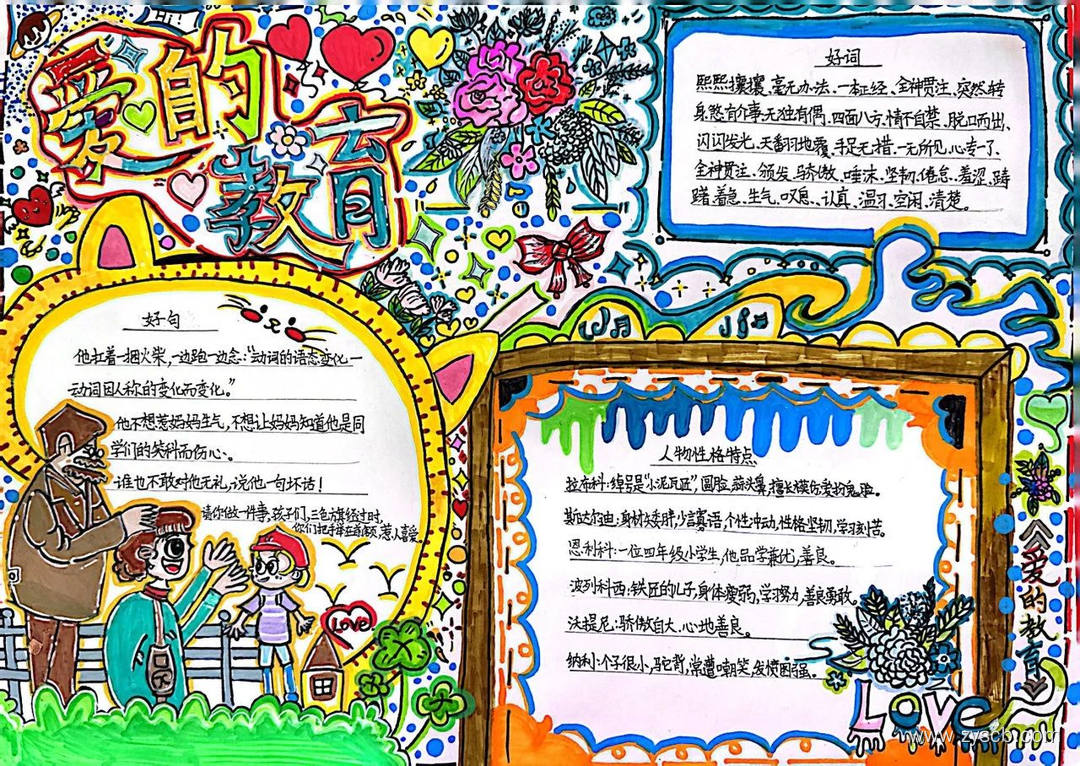 爱的
教育
好词
熙熙攘攘、毫无办法、一本正经、全神贯注、突然转
身、煞有介事、无独有偶、四面八方、情不自禁、脱口而出、
闪闪发光、天翻地覆、手足无措、一无所见、心专了、
全神贯注、颁发、骄傲、唾沫、坚韧、倦怠、羞涩、踌
躇、着急、生气、叹息、认真、温习、空闲、清楚。
好句
他扛着一捆火柴,一边跑一边念:“动词的语态变化一
动词因人称的变化而变化。”
他不想惹妈妈生气,不想让妈妈知道他是同
学们的笑料而伤心。
谁也不敢对他无礼,说他一句坏话!
请你做一件事,孩子们,三色旗经过时,
你们把手举在额,惹人喜爱。
Love
人物性格特点
拉布科:绰号是“小泥瓦匠”,圆脸,蒜头鼻,擅长模仿爱扮鬼脸。
斯达尔迪:身材矮胖,少言寡语,个性冲动,性格坚韧,学习刻苦。
恩利科:一位四年级小学生,他品学兼优,善良。
波列科西:铁匠的儿子,身体瘦弱,学习努力,善良勇敢。
沃提尼:骄傲自大,心地善良。
纳利:个子很小,驼背,常遭嘲笑,发愤图强。
《爱的教育》
LOVE
www.zyscb.com